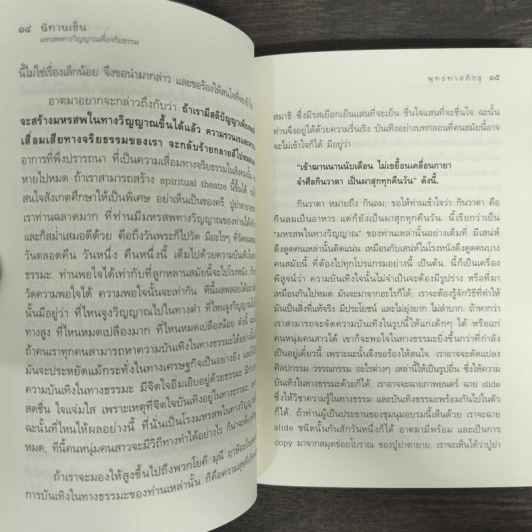 ๑๔ นิทานเซ็น
มหรสพทางวิญญาณเพื่อจริยธรรม
นี้ไม่ใช่เรื่องเล็กน้อย จึงขอนำมากล่าว และขอร้องให้สนใจ
อาตมาอยากจะกล่าวถึงกับว่า ถ้าเรามีสติปัญญา
จะสร้างมหรสพในทางวิญญาณขึ้นได้แล้ว ความรวนเร
เสื่อมเสียทางจริยธรรมของเรา จะกลับร้ายกลายดี
อาการที่พึงปรารถนา ที่เป็นความเสื่อมทางจริยธรรม
หายไปหมด ถ้าเราสามารถสร้าง spiritual theatre นี้ขึ้นได้
สนใจสังเกตศึกษาให้เป็นพิเศษ อย่าเห็นเป็นของฟรี ปู่ย่าตายาย
เราท่านฉลาดมาก ที่ท่านมีมหรสพทางวิญญาณของท่านได้
และก็สม่ำเสมอดีด้วย คือถึงวันพระก็ไปวัด มีอะไรๆ ที่วัด
วันตลอดคืน วันหนึ่ง คืนหนึ่งนี้ เต็มไปด้วยความบันเทิง
ธรรมะ. ท่านพอใจได้เท่ากับที่ลูกหลานสมัยนี้จะไปโรงหนัง
วัดความพอใจได้ ความพอใจนั้นจะเท่ากัน ทีนี้ผลพลอยได้
นั้นมีอยู่ว่า ที่ไหนจูงวิญญาณไปในทางต่ำ ที่ไหนจูงวิญญาณ
ทางสูง ที่ไหนหมดเปลืองมาก ที่ไหนหมดเปลืองน้อย ดังนี้
ถ้าคนเราทุกคนสามารถหาความบันเทิงในทางธรรมะได้
มันจะประหยัดแม้กระทั่งในทางเศรษฐกิจเป็นอย่างยิ่ง และ
ความบันเทิงในทางธรรมะ มีจิตใจอิ่มเอิบอยู่ด้วยธรรมะ
สดชื่น ใจแจ่มใส เพราะเหตุที่จิตใจบันเทิงอยู่ในธรรมะ
ฉะนั้นที่ไหนให้ผลอย่างนี้ ที่นั่นเป็นโรงมหรสพทางวิญญาณ
หมด; ทีนี้คนหนุ่มคนสาวจะมีวิถีทางทำได้อย่างไร
ถ้าเราจะมองให้สูงขึ้นไปถึงพวกโยคี มุนี
การบันเทิงในทางธรรมะของท่านเหล่านั้น ก็คือความสุข
พุทธทาสภิกขุ ๑๕
สมาธิ ซึ่งมีรสเยือกเย็นแสนที่จะเย็น ชื่นใจแสนที่จะชื่นใจ ฉะนั้น
ท่านจึงอยู่ได้ด้วยความรื่นเริง บันเทิงอย่างบทกลอนที่คนสมัยนี้อาจ
จะไม่เข้าใจก็ได้ มีอยู่ว่า
"เข้าฌานนานนับเดือน ไม่เขยื้อนเคลื่อนกายา
จำศีลกินวาตา เป็นผาสุกทุกคืนวัน" ดังนี้.
กินวาตา หมายถึง กินลม; ขอให้ท่านเข้าใจว่า กินวาตา คือ
กินลมเป็นอาหาร แต่ก็ยังเป็นผาสุกทุกคืนวัน นี้เรียกว่าเป็น
"มหรสพในทางวิญญาณ" ของท่านเหล่านั้นอย่างเต็มที่ มีเสน่ห์
ดึงดูดคนเหล่านั้นติดแน่น เหมือนกับเสน่ห์ในโรงหนังดึงดูดคนบาง
คนสมัยนี้ ที่ต้องไปทุกโปรแกรมอย่างนี้ เป็นต้น. นี้ก็เป็นเครื่อง
พิสูจน์ว่า ความบันเทิงใจนั้นไม่จำเป็นจะต้องมีรูปร่าง หรือที่มา
เหมือนกันไปหมด มันจะมาจากอะไรก็ได้; เราจะต้องรู้จักวิธีที่ทำให้
มันเป็นสิ่งที่แท้จริง มีประโยชน์ และไม่ยุ่งยาก ไม่ลำบาก. ถ้าหากว่า
เราสามารถจะจัดความบันเทิงในรูปนี้ให้แก่เด็กๆ ได้ หรือแก่
คนหนุ่มคนสาวได้ เขาก็จะพอใจในทางธรรมะยิ่งขึ้นกว่าที่กำลัง
เป็นอยู่เดี๋ยวนี้ เพราะฉะนั้นจึงขอร้องให้สนใจ. เราอาจจะดัดแปลง
ศิลปกรรม วรรณกรรม อะไรต่างๆ เหล่านี้ให้เป็นรูปอื่น ซึ่งให้ความ
บันเทิงในทางธรรมะด้วยก็ได้. เราอาจจะฉายภาพยนตร์ ฉาย slide
ซึ่งให้วิชาความรู้ในทางธรรมะ และบันเทิงในทางธรรมะพร้อมกันไปในตัว
ก็ได้. ถ้าท่านผู้เป็นประธานของชุมนุมอบรมนี้เห็นด้วย เราจะฉาย
slide ชนิดนั้นกันสักวันหนึ่งก็ได้ อาตมามีพร้อม และเป็นการ
copy มาจากสมุดข่อยโบราณ ของปู่ย่าตายาย; เราจะเห็นได้ว่าปู่ย่า